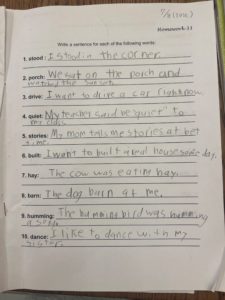 Homework-11
Write a sentence for each of the following words:
1. stood: I stood in the corner.
2. porch: We sat on the porch and
watched the sunset.
3. drive: I want to drive a car right now.
4. quiet: My teacher said be "quiet" to
my class.
5. stories: My mom tells me stories at bet
time.
6. built: I want to built a real house some day.
7. hay: The cow was eating hay.
8. barn: The dog barn at me.
9. humming: The humming bird was humming
a song.
10. dance: I like to dance with my
sister.